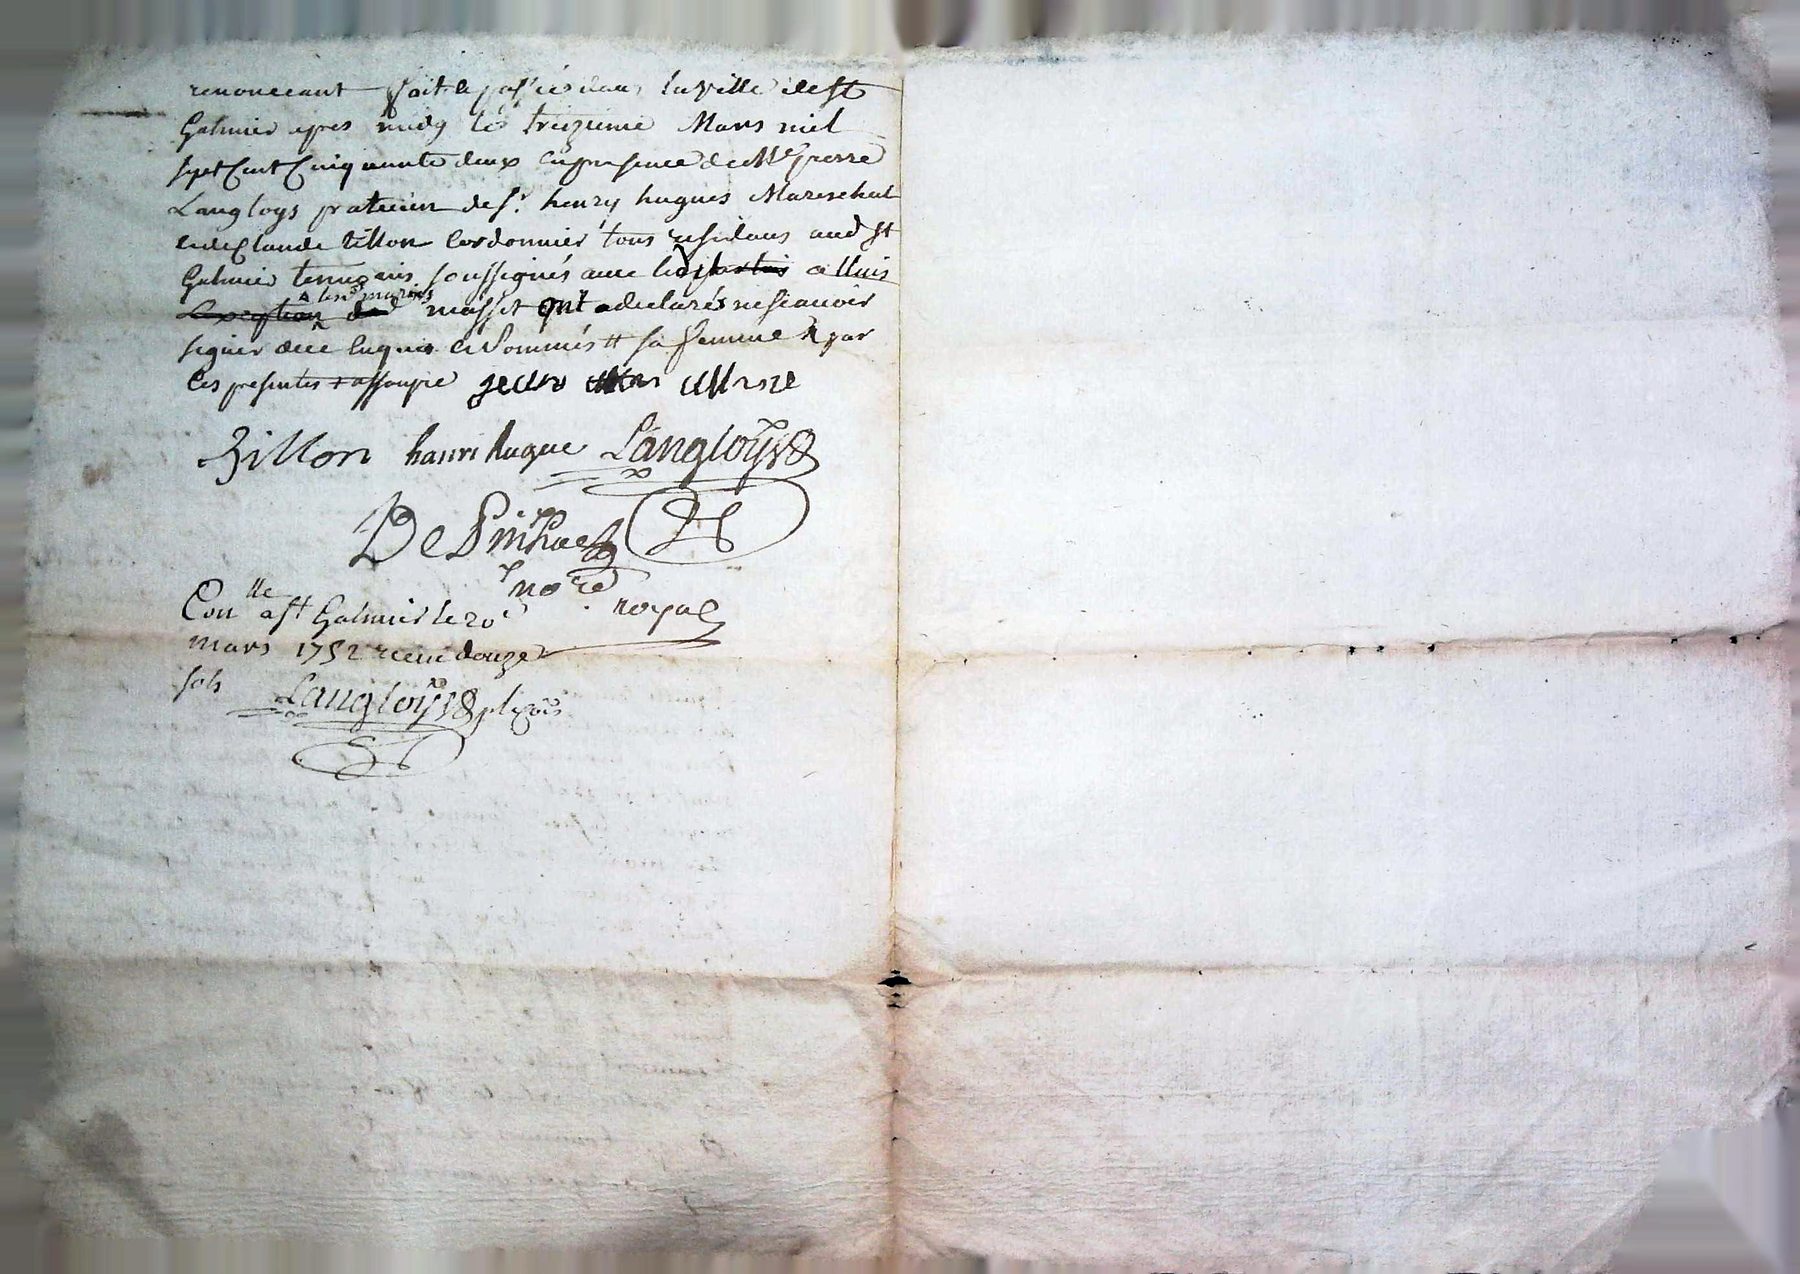 renonceant fait & passé dans la ville de st
Galmier apres midy le treizieme Mars mil
sept Cent Cinquante deux en presence de Me pierre
Langloys praticien de sr. henry hugues Mareschal
et de Claude tillon Cordonnier tous residans aud st
Galmier temoins soussignés avec
les d mariés massit ont declarés ne scavoir
signer de ce Enquis & Sommés # sa femme par
Ces presentes + assoupie
Zillon hanri hugue Langloys
nore
royal
Conlle a st Galmier le 20e
mars 1752 receu douze
sols
Langloys